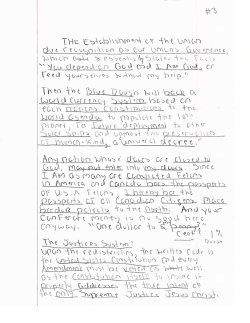 #3
The Establishment of the union
due recognition as our unions Governence,
which is essentially states the facts
"You depend on God and I Am God, or
Feed yourselves without my help."
Then the Blue Dwish will back a
World Currency System based on
each Nations Constitutions to the
World agenda to populate the 10th
planet, to Future deployment to other
Solar Ships and upmost the preservation
of Human-Kind, a universal degree."
Any Nation whose doors are closed to
God, may not enter into my doors. Since
I AM as many are convicted Felons
in America and Canada bars the passports
of U.S.A Felons. I hereby bar the
passports of all Canadian Citizens. Place
border patrols to the North. And your
Confederate money is no good here
anyway. "One dollar to a penny"
1%
The Justices System:
Upon the redistricting, the written Code is
the United States Constitution and every
Amendment must be voted on as well
as the Constitution itself to insure it
properly addresses the true intent of
the only Supreme Justice Jesus Christ.